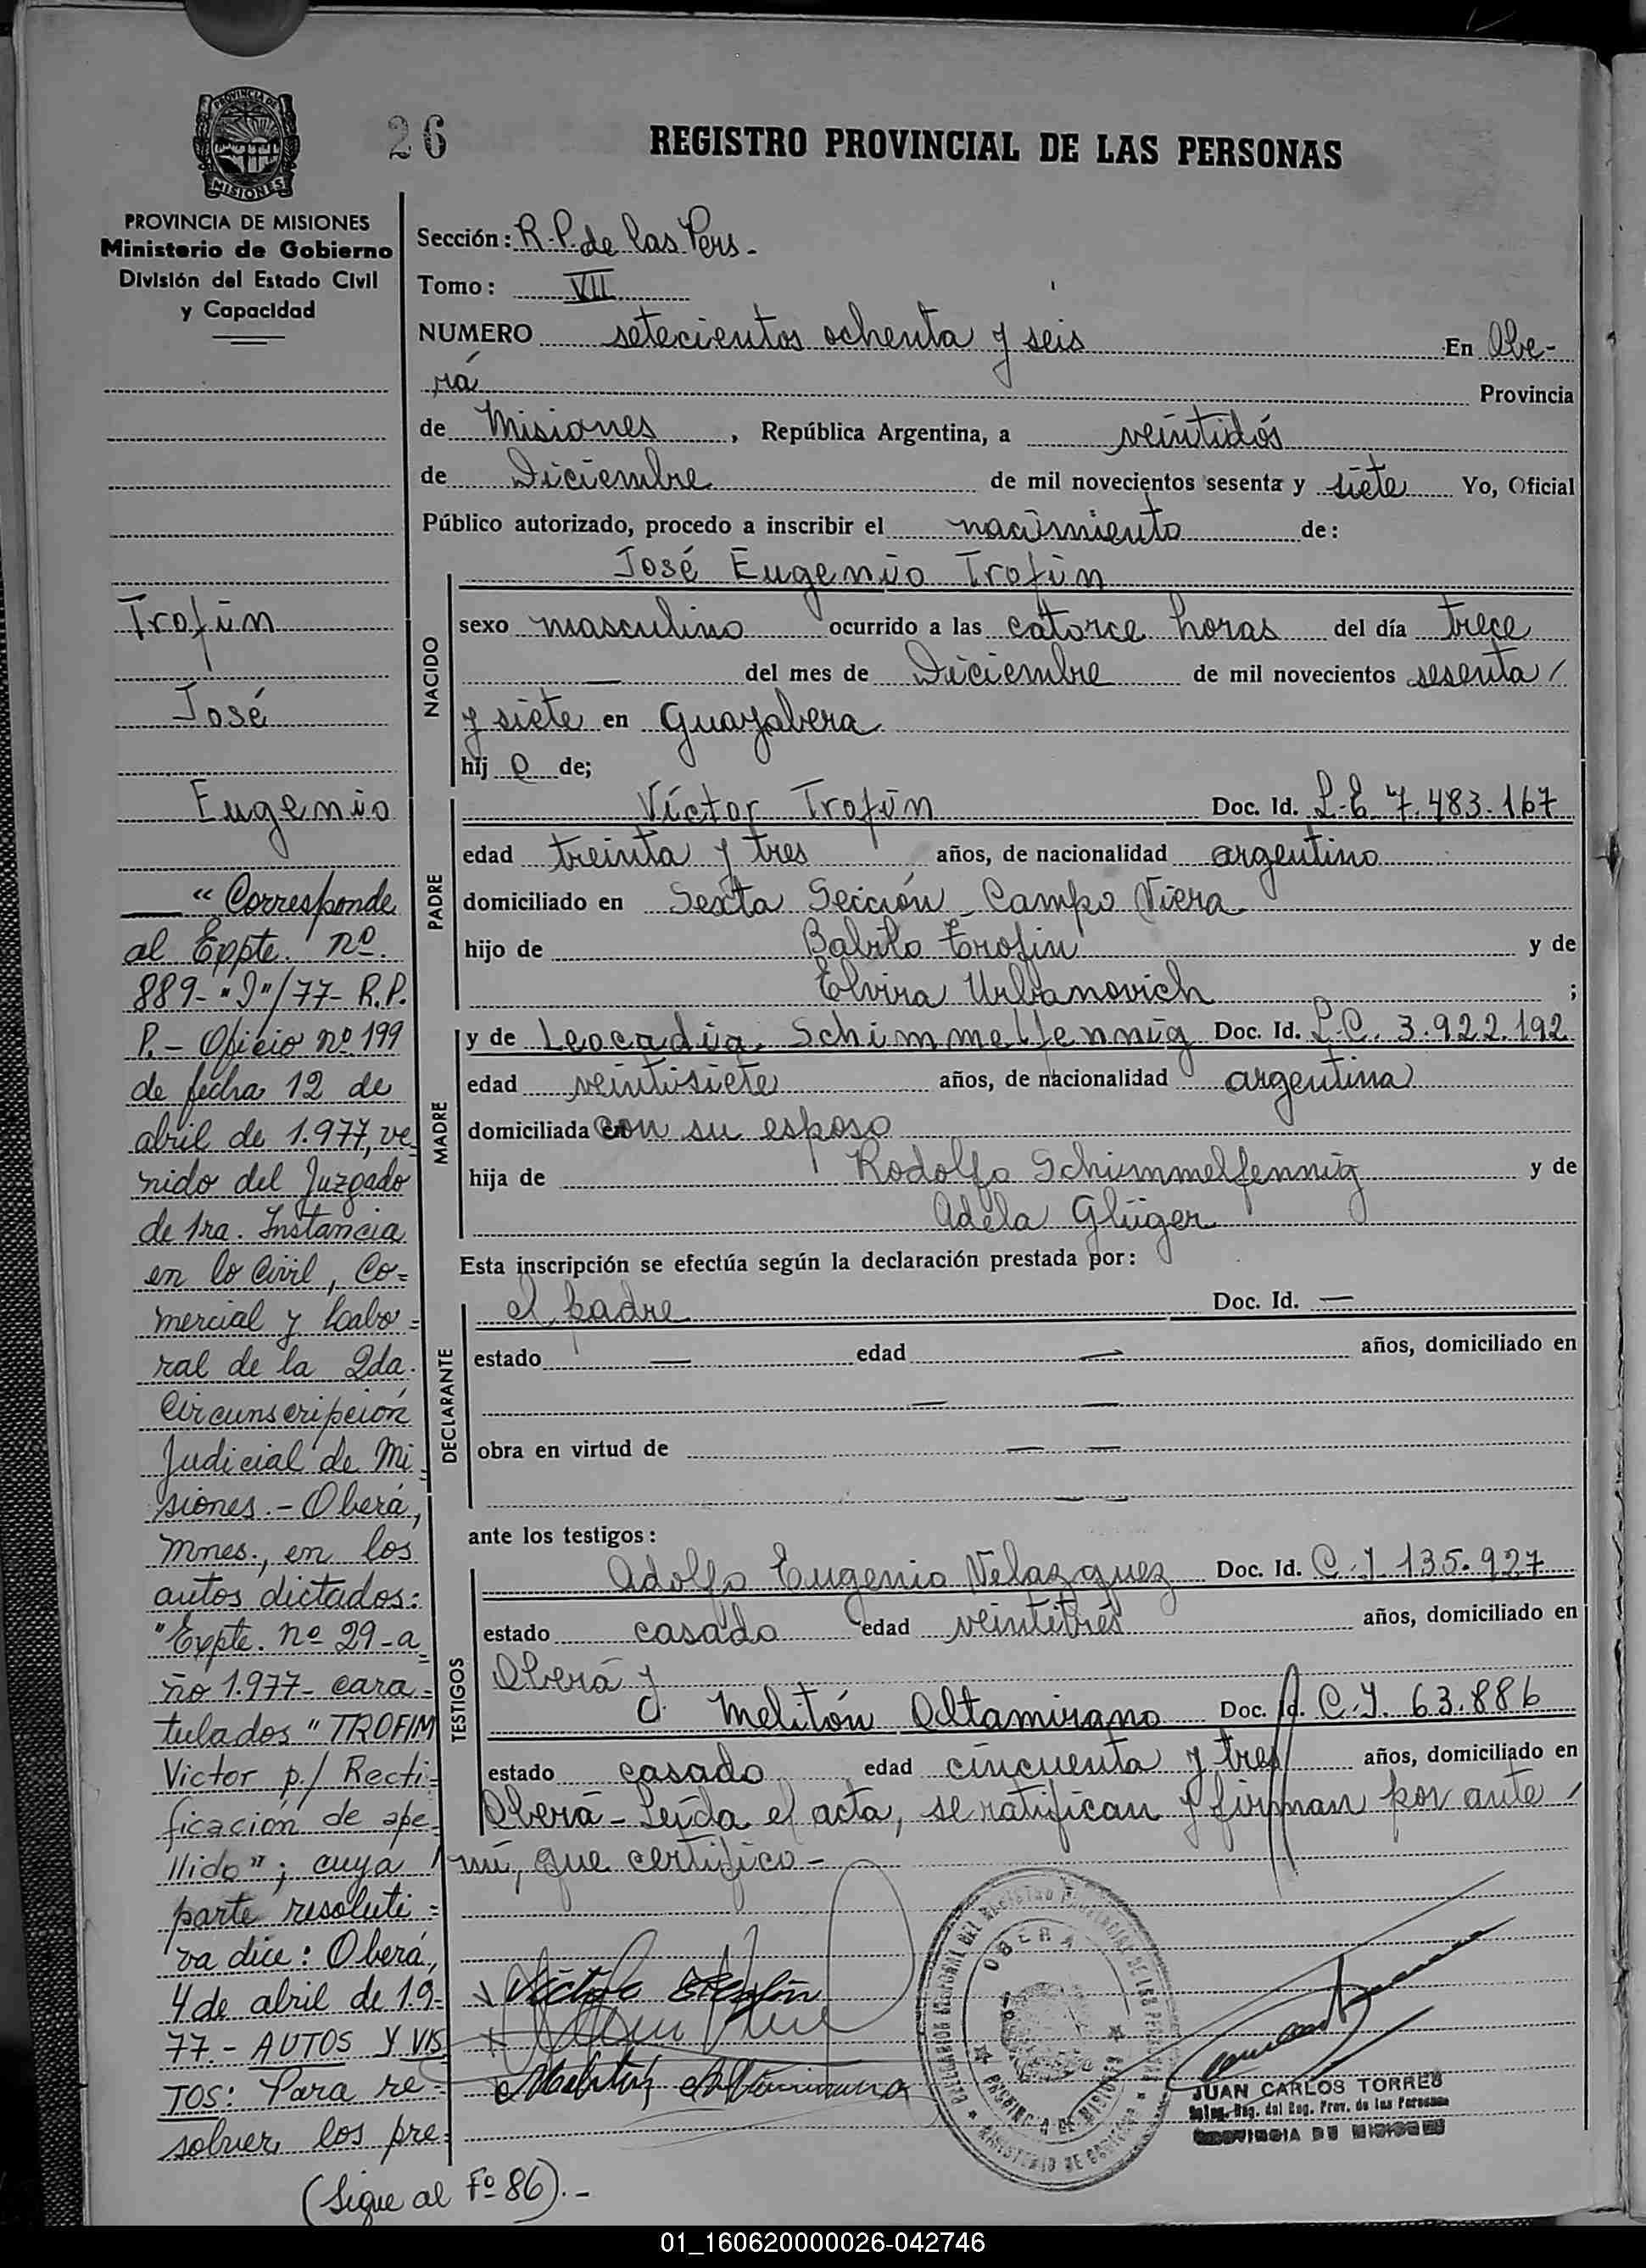 PROVINCIA DE
MISIONES
26
REGISTRO PROVINCIAL DE LAS PERSONAS
PROVINCIA DE MISIONES
Ministerio de Gobierno
División del Estado Civil
y Capacidad
Trofin
José
Eugenio
"Corresponde
al Expte. nº.
889-"J"/77- R.P.
P.- Oficio nº 199
de fecha 12 de
abril de 1.977, ve
nido del Juzgado
de 1ra. Instancia
en lo Civil, Co=
mercial y Labo=
ral de la 2da.
Circunscripción
Judicial de Mi=
siones.- Oberá,
Mnes., en los
autos dictados:
"Expte. nº 29-a=
ño 1.977- cara=
tulados "TROFIM
Victor p./ Recti=
ficación de ape=
llido"; cuya
parte resoluti=
va dice: Oberá,
4 de abril de 19-
77.- AUTOS Y VIS
TOS: Para re=
solver los pre=
(Sigue al Fº 86).-
Sección: R.P. de las Pers.-
Tomo: VII
NUMERO setecientos ochenta y seis En Obe-
rá Provincia
de Misiones, República Argentina, a veintidós
de Diciembre de mil novecientos sesenta y siete Yo, Oficial
Público autorizado, procedo a inscribir el nacimiento de:
NACIDO
José Eugenio Trofin
sexo masculino ocurrido a las catorce horas del día trece
— del mes de Diciembre de mil novecientos sesenta /
y siete en Guayabera
hij o de;
PADRE
Víctor Trofin Doc. Id. L.E. 7.483.167
edad treinta y tres años, de nacionalidad argentino
domiciliado en Sexta Sección - Campo Viera
hijo de Babilo Trofin y de
Elvira Urbanovich ;
MADRE
y de Leocadia Schimmelfennig Doc. Id. L.C. 3.922.192
edad veintisiete años, de nacionalidad argentina
domiciliada en con su esposo
hija de Rodolfo Schimmelfennig y de
Adela Glüger
Esta inscripción se efectúa según la declaración prestada por:
DECLARANTE
el padre Doc. Id. —
estado — edad — años, domiciliado en
— —
obra en virtud de — —
— —
ante los testigos:
TESTIGOS
Adolfo Eugenio Velazquez Doc. Id. C.I. 135.927
estado casado edad veintitrés años, domiciliado en
Oberá y
Melitón Altamirano Doc. Id. C.I. 63.886
estado casado edad cincuenta y tres años, domiciliado en
Oberá - Leída el acta, se ratifican y firman por ante /
mí, que certifico-
Melitón Altamirano
OBERA
PROVINCIA DE MISIONES
MINISTERIO DE GOBIERNO
JUAN CARLOS TORRES
Reg. del Reg. Prov. de las Personas
PROVINCIA DE MISIONES
01_160620000026-042746